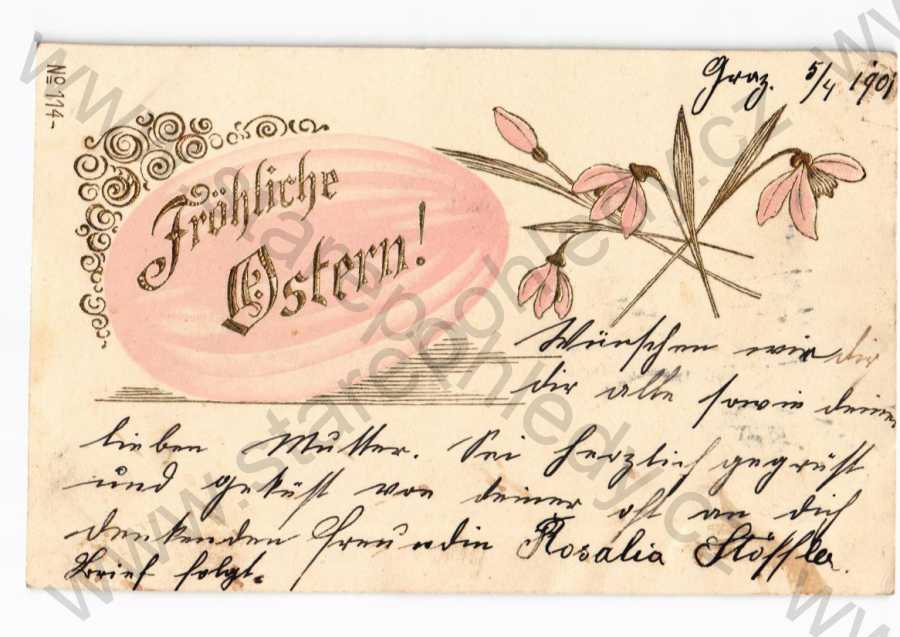 No 114-
Graz. 5/4 1901
Fröhliche
Ostern!
Wünschen wir dir
dir alle sowie deiner
lieben Mutter. Sei herzlich gegrüßt
und geküßt von deiner oft an dich
denkenden Freundin Rosalia Stöffler.
Brief folgt.
www.starepohledy.cz